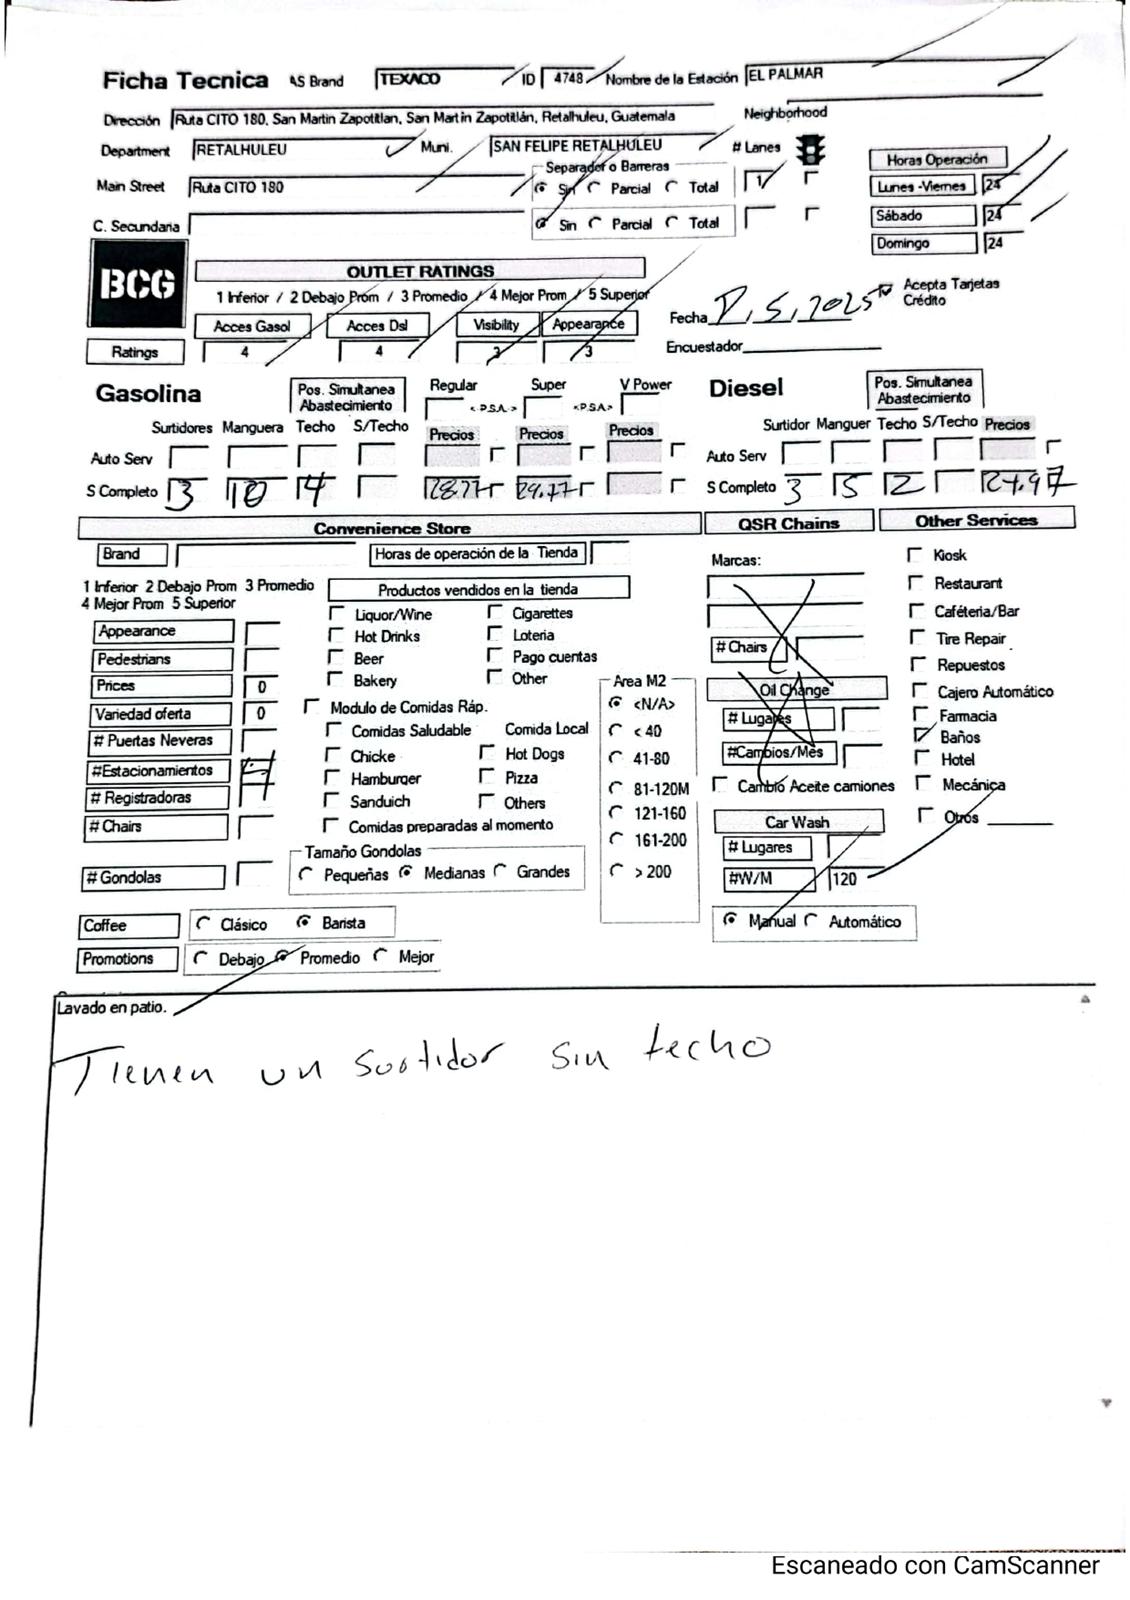 Ficha Tecnica AS Brand TEXACO ID 4748 Nombre de la Estación EL PALMAR
Dirección Ruta CITO 180, San Martin Zapotitlan, San Martín Zapotitlán, Retalhuleu, Guatemala Neighborhood
Department RETALHULEU Muni. SAN FELIPE RETALHULEU # Lanes
Horas Operación
Separador o Barreras
Main Street Ruta CITO 180 Sin Parcial Total 1 Lunes -Viernes 24
C. Secundaria Sin Parcial Total Sábado 24
Domingo 24
BCG
OUTLET RATINGS
1 Inferior / 2 Debajo Prom / 3 Promedio / 4 Mejor Prom / 5 Superior
Acepta Tarjetas Crédito
Acces Gasol Acces Dsl Visibility Appearance Fecha
Ratings 4 4 3 3 Encuestador
Gasolina Pos. Simultanea Abastecimiento Regular Super V Power Diesel Pos. Simultanea Abastecimiento
<P.S.A.> <P.S.A.>
Surtidores Manguera Techo S/Techo Precios Precios Precios Surtidor Manguer Techo S/Techo Precios
Auto Serv Auto Serv
S Completo 3 10 4 28.77 29.77 S Completo 3 5 2 27.97
Convenience Store QSR Chains Other Services
Brand Horas de operación de la Tienda Marcas: Kiosk
1 Inferior 2 Debajo Prom 3 Promedio Productos vendidos en la tienda Restaurant
4 Mejor Prom 5 Superior Liquor/Wine Cigarettes Caféteria/Bar
Appearance Hot Drinks Loteria # Chairs Tire Repair
Pedestrians Beer Pago cuentas Repuestos
Prices 0 Bakery Other Area M2 Oil Change Cajero Automático
Variedad oferta 0 Modulo de Comidas Ráp. <N/A> # Lugares Farmacia
# Puertas Neveras Comidas Saludable Comida Local < 40 Baños
#Estacionamientos Chicke Hot Dogs 41-80 #Cambios/Mes Hotel
# Registradoras Hamburger Pizza 81-120M Cambio Aceite camiones Mecánica
# Chairs Sanduich Others 121-160 Car Wash Otros
Comidas preparadas al momento 161-200 # Lugares
Tamaño Gondolas
# Gondolas Pequeñas Medianas Grandes > 200 #W/M 120
Coffee Clásico Barista Manual Automático
Promotions Debajo Promedio Mejor
Lavado en patio.
Tienen un surtidor sin techo
Escaneado con CamScanner